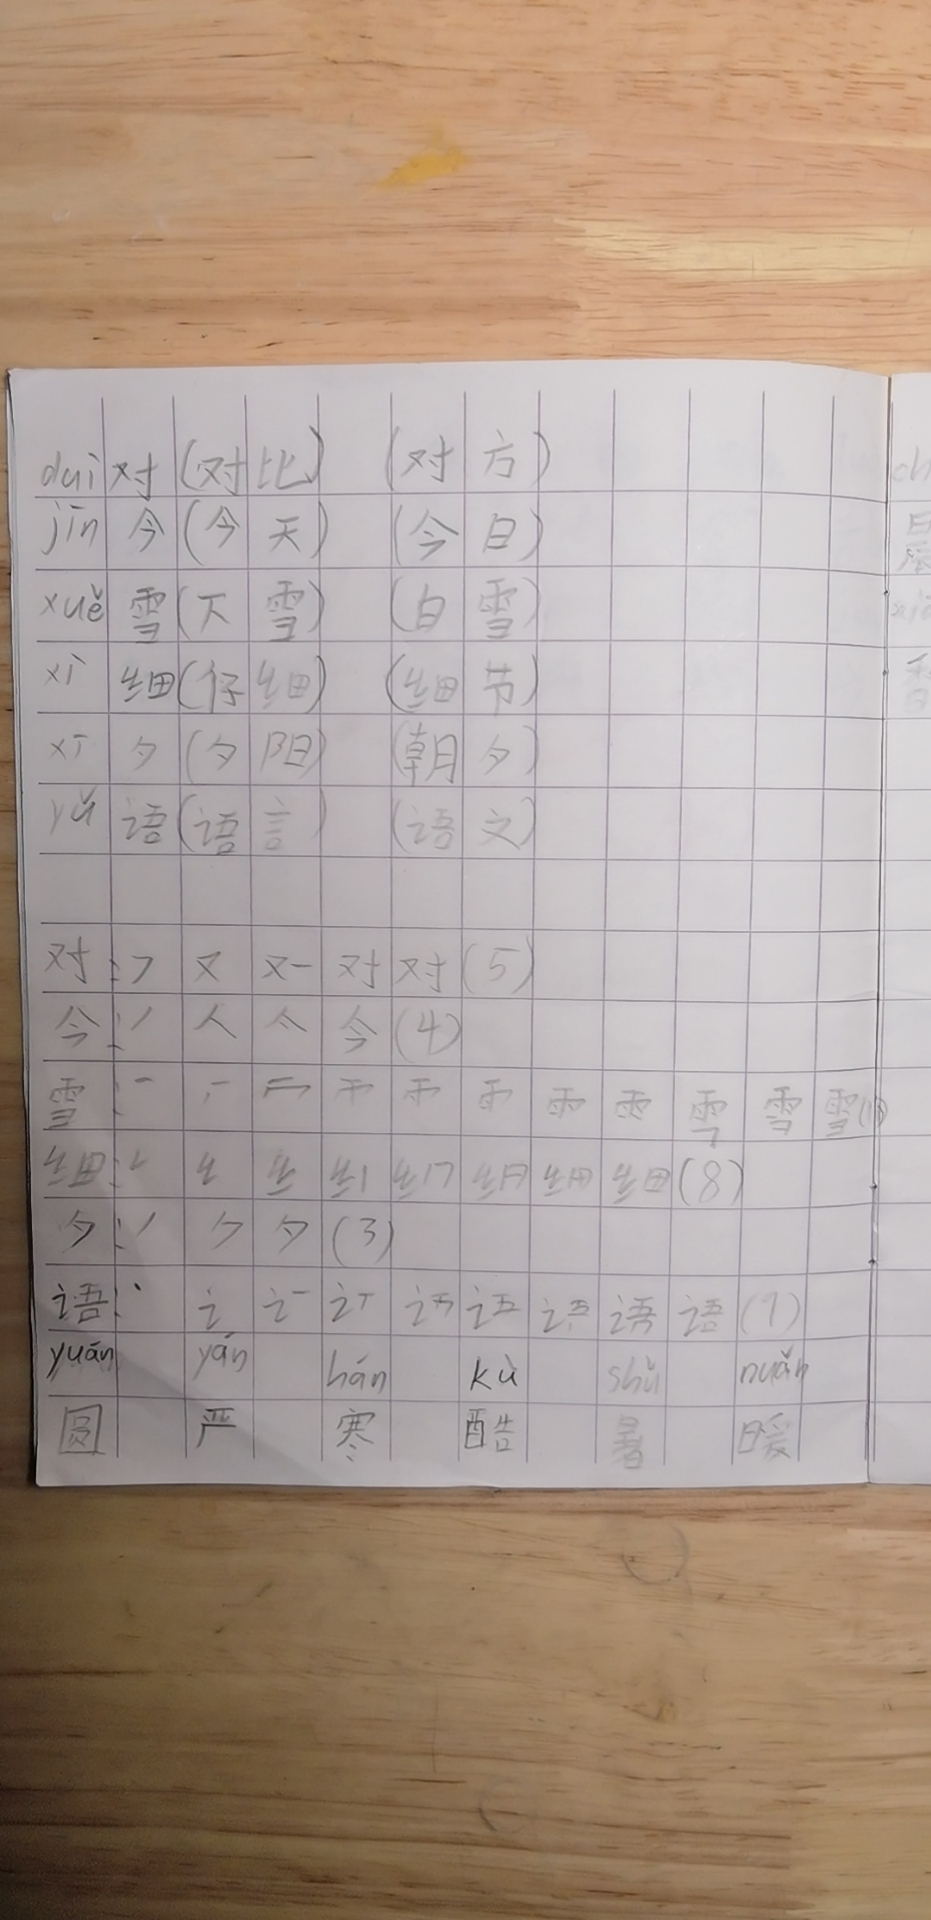 duì 对 (对比) (对方)
jīn 今 (今天) (今日)
xuě 雪 (下雪) (白雪)
xì 细 (仔细) (细节)
xī 夕 (夕阳) (朝夕)
yǔ 语 (语言) (语文)
对: フ 又 对 对 (5)
今: 丿 人 亽 今 (4)
雪: 一 雨 雪 (11)
细: 细 (8)
夕: 丿 ク 夕 (3)
语: 丶 讠 语 语 (9)
yuán yán hán kù shǔ nuǎn
圆 严 寒 酷 暑 暖